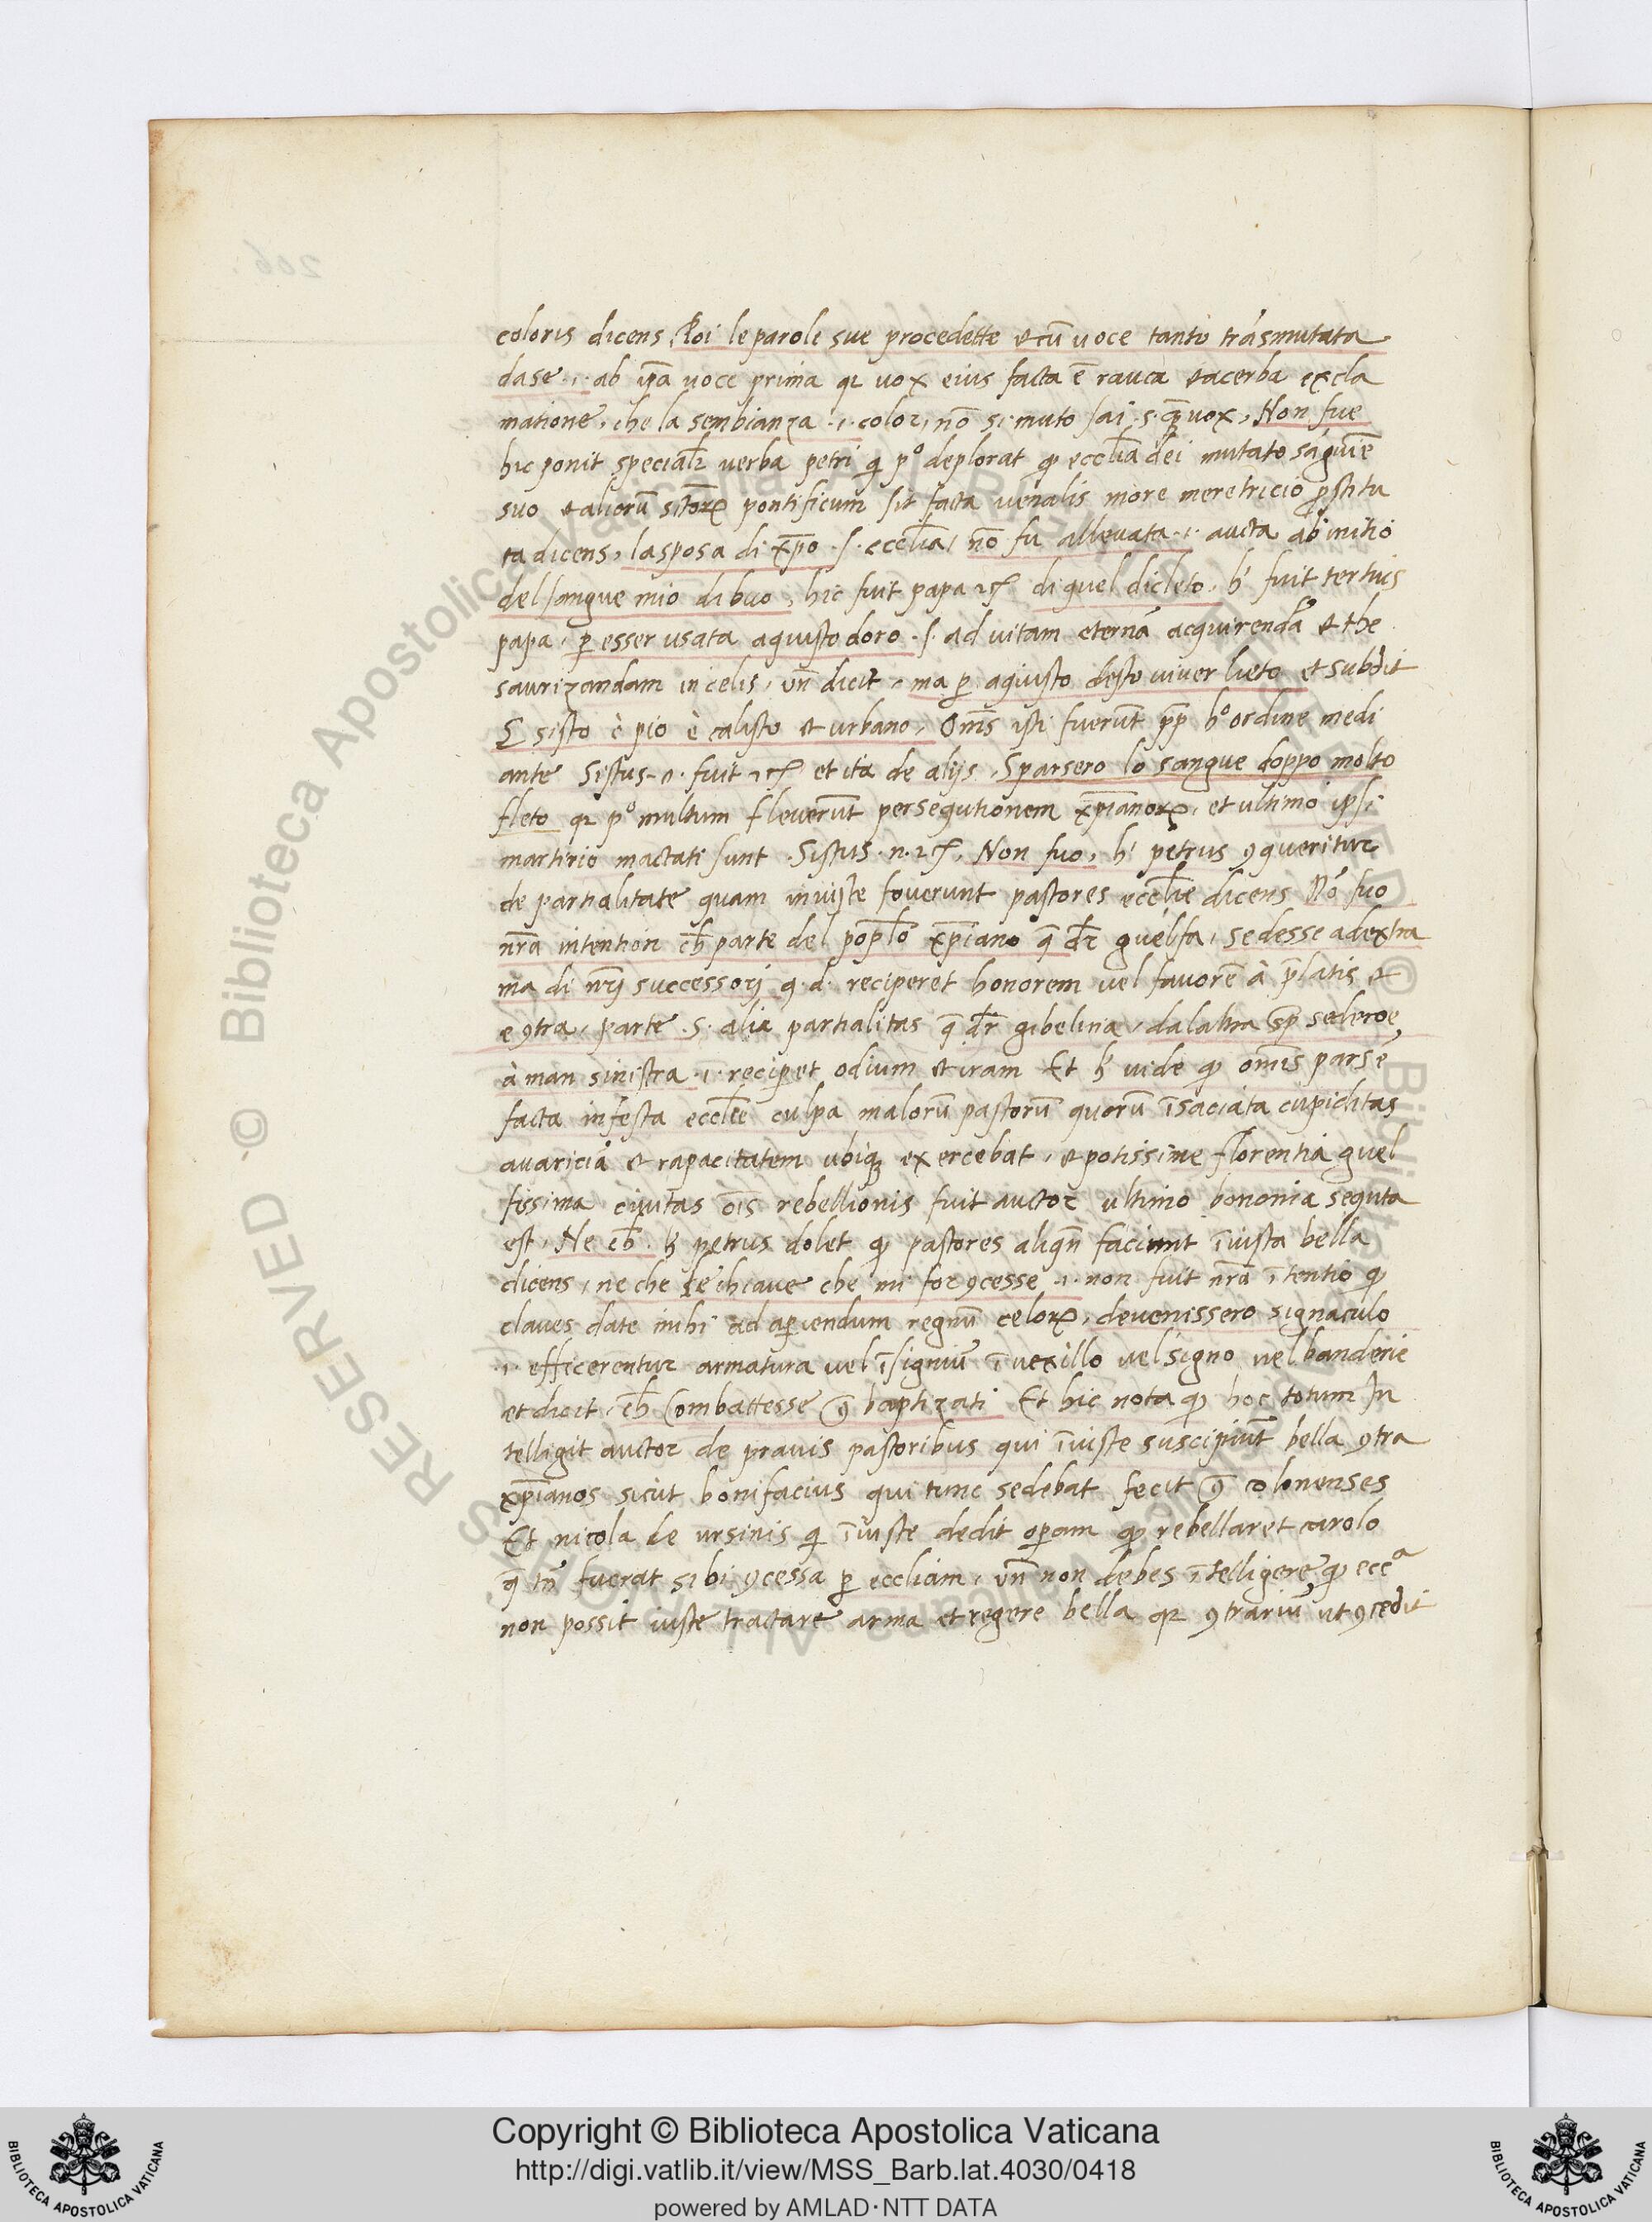 206
coloris dicens, Poi le parole sue procedette et cū uoce tanto trásmutata
dase .i. ab ip̄a uoce prima qr uox eius facta ē rauca et acerba excla
matione, che la sembianza .i. color, nō si muto sai .s. q̄ uox, Non fue
hic ponit specialr̄ uerba petri qi pº deplorat qp eccl̄ia dei mutato ságuīe
suo et aliorū sctōrꝝ pontificum sit facta uenalis more meretricio ꝓstitu
ta dicens, la sposa di xp̄o .s. eccl̄ia, nō fu alleuata .i. aucta ab initio
del sangue mio di buo, hic fuit papa 2s di quel di cleto, h' fuit tertius
papa, ꝑ esser usata aquisto doro .s. ad uitam eternā acquirendā et the
saurizandam in celis, un̄ dicit, ma ꝑ aquisto desto uiuer lieto et subdit
E sisto è pio è calisto et urbano, Om̄s isti fuerūt pp̄ hº ordine medi
ante Sistus .n. fuit 2s et ita de alijs, Sparsero lo sangue doppo molto
fleto qr pº multum fleuerūt persegutionem xp̄ianorꝝ, et ultimo ipsi
martirio mactati sunt. Sistus .n. 2s, Non fuo, h' petrus ꝯqueritur
de partialitate quam iniuste fouerunt pastores eccl̄ie dicens Nō fuo
nr̄a intention ch̄ parte del popl̄o xp̄iano q̄ dr̄ guelfa, sedesse a dextra
ma di nr̄j successorj q.d. reciperet honorem uel fauorē à p̄latis et
e ꝯtra, parte .s. alia partialitas q̄ dr̄ gibelina, da laltra sp̄ sederoe,
à man sinistra .i. recipet odium et iram Et h' uide qp om̄is pars ē
facta infesta eccl̄ie culpa malorū pastorū quorū īsaciata cupiditas
auariciā et rapacitatem ubiqȝ exercebat, et potissime florentia guel
fissima ciuitas oīs rebellionis fuit auctor ultimo bononia seguta
est, Ne ch̄. h' petrus dolet qp pastores aliqn̄ faciunt īiusta bella
dicens, ne che le chiaue che mi for ꝯcesse .i. non fuit nr̄a ītentio qp
claues date mihi ad aperiendum regnū celorꝝ, deuenissero signaculo
.i. efficerentur armatura uel īsigniū ī uexillo uel signo uel banderie
et dicit, ch̄ Combattesse ꝯ̄ baptizati Et hic nota qp hoc totum In
telligit auctor de prauis pastoribus qui īiuste suscipiūt bella ꝯtra
xp̄ianos sicut bonifacius qui tunc sedebat fecit ꝯ̄ colonenses
Et nicola de ursinis qi īiuste dedit opam qp rebellaret carolo
q̄ tn̄ fuerat sibi ꝯcessa ꝑ eccliam, un̄ non debes ītelligere, qp eccª
non possit iuste tractare arma et regere bella qr ꝯtrariū ut ꝯcedit
© Biblioteca Apostolica Vaticana ALL RIGHTS RESERVED
Copyright © Biblioteca Apostolica Vaticana
http://digi.vatlib.it/view/MSS_Barb.lat.4030/0418
powered by AMLAD·NTT DATA
BIBLIOTECA APOSTOLICA VATICANA
BIBLIOTECA APOSTOLICA VATICANA